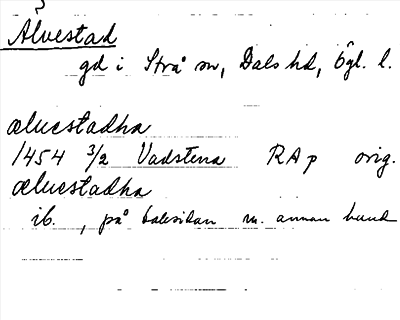 Älvestad
gd i Strå sn, Dals hd, Ögl. l.
ælvestadha
1454 3/2 Vadstena RAp orig.
ælvestadha
ib., på baksidan m. annan hand